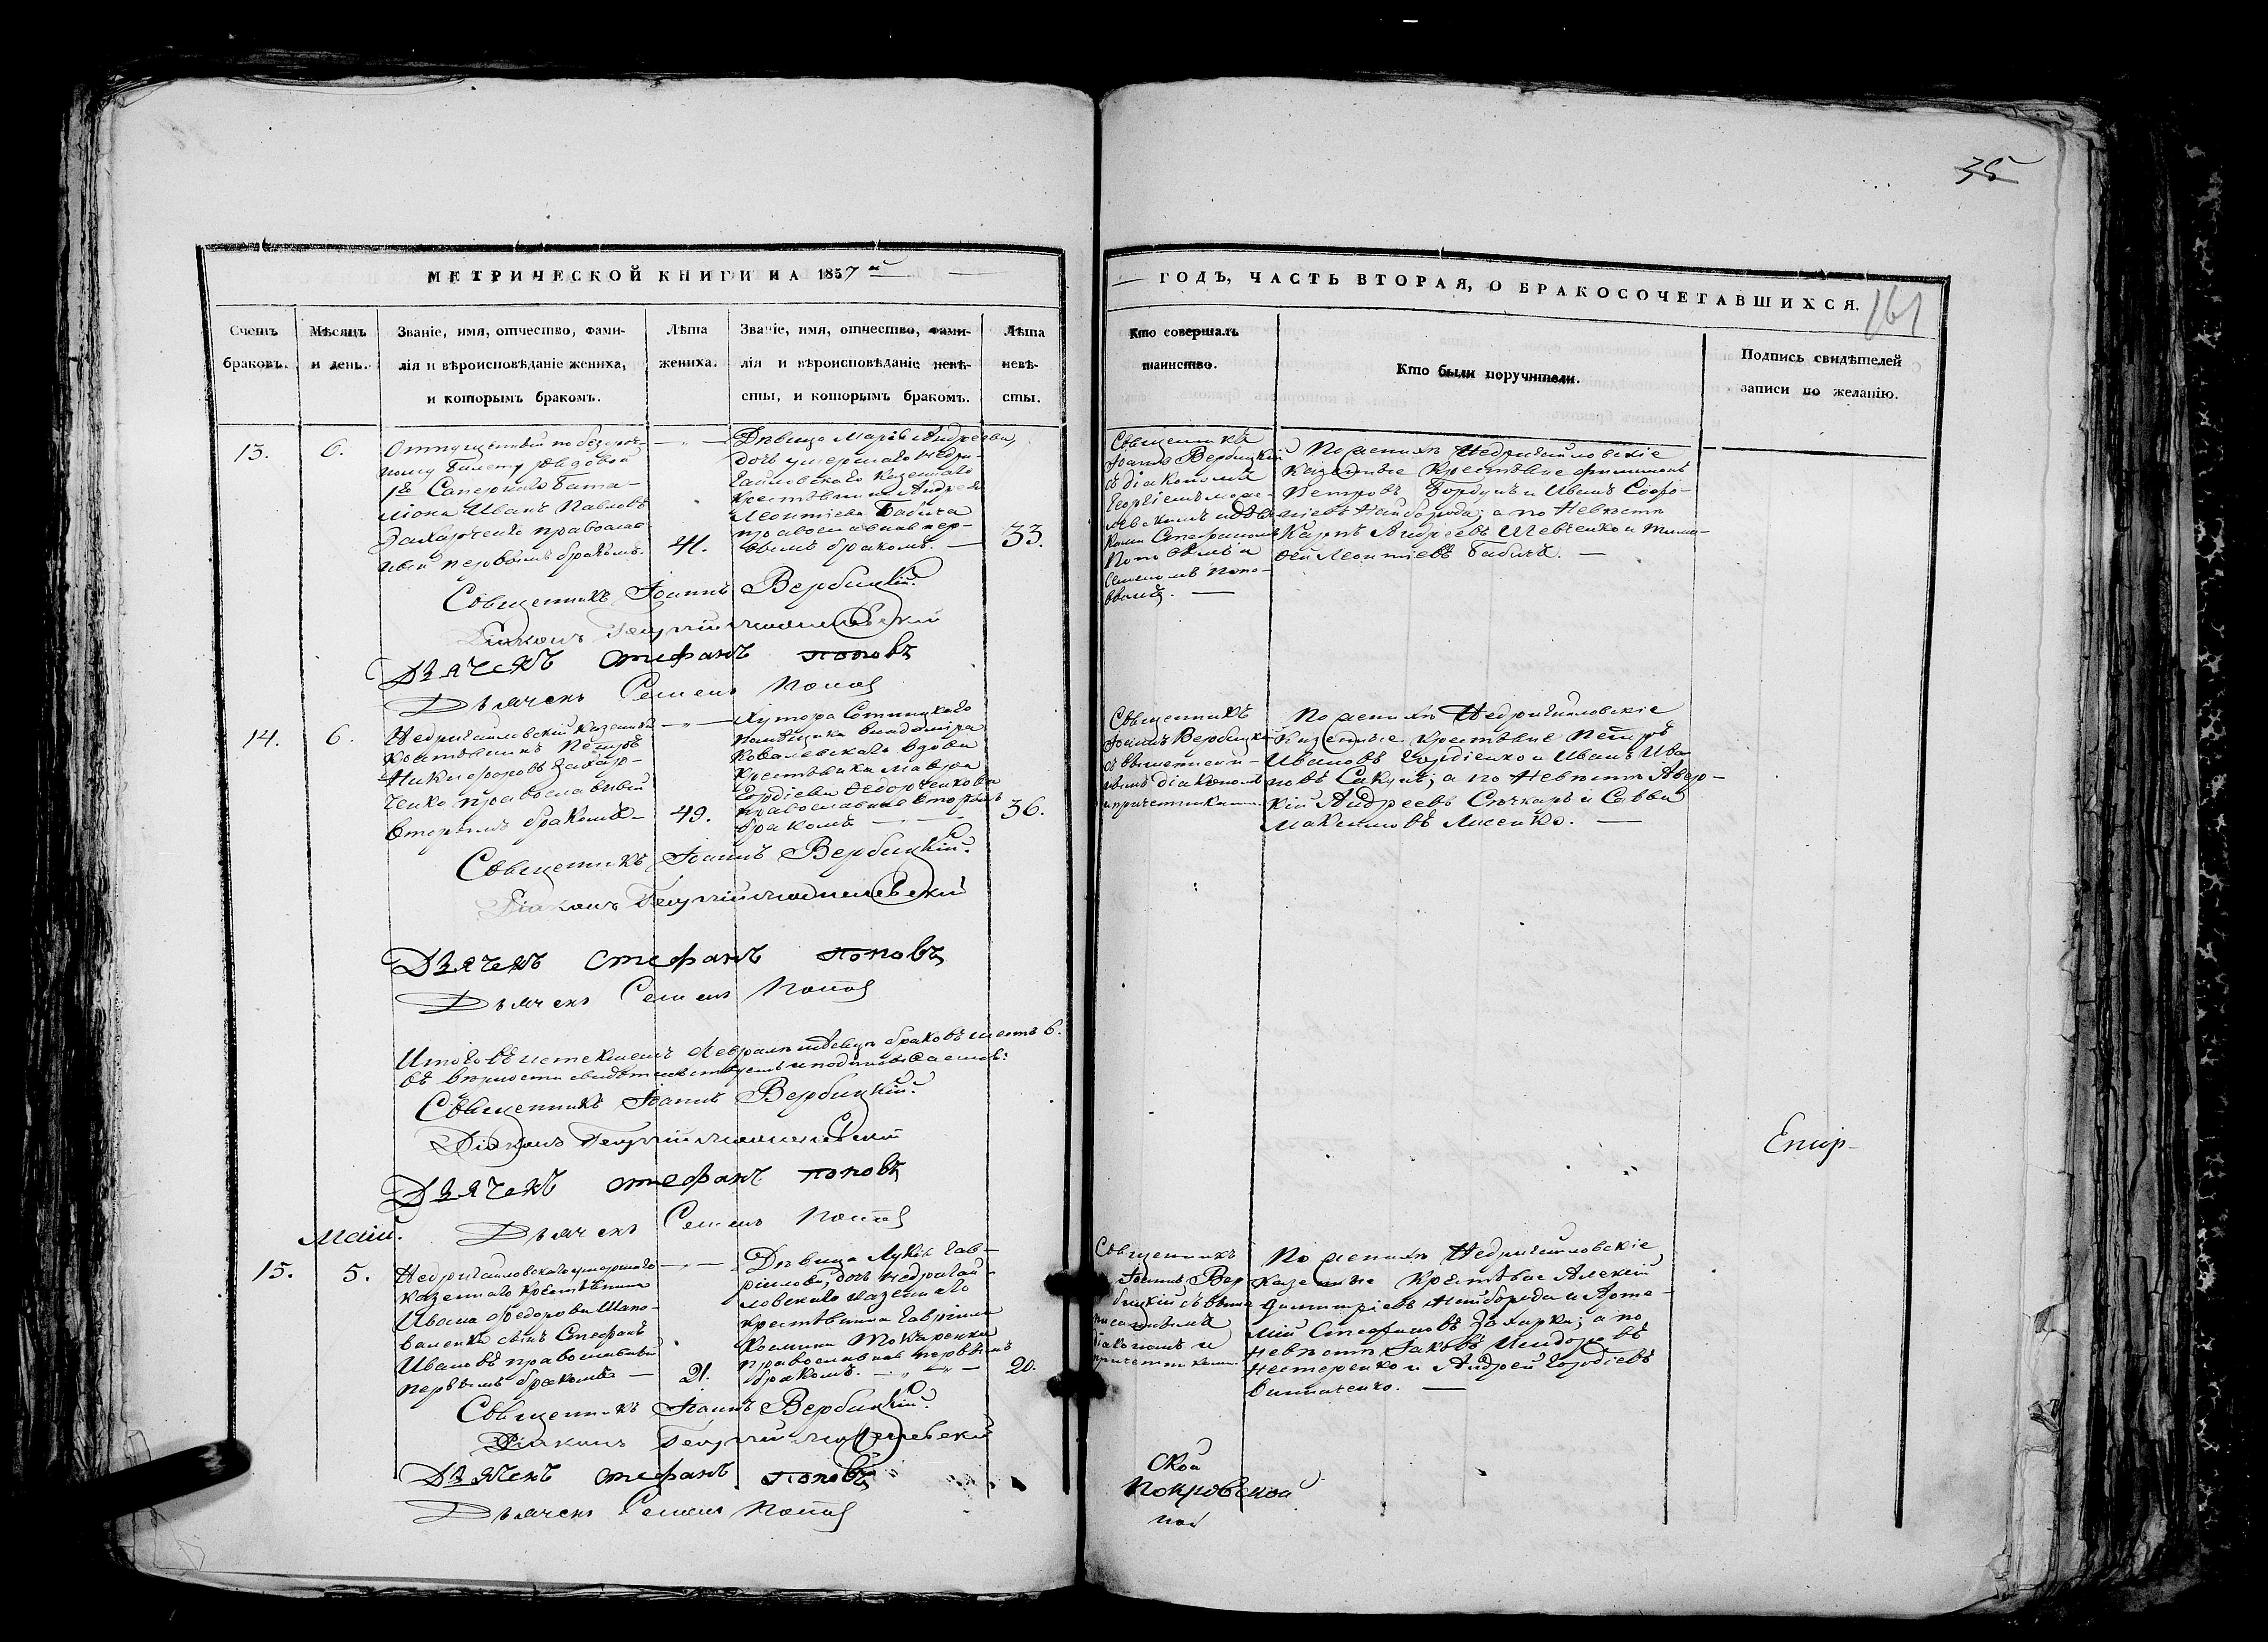 35
161
МЕТРИЧЕСКОЙ КНИГИ НА 1857 й
ГОДЪ, ЧАСТЬ ВТОРАЯ, О БРАКОСОЧЕТАВШИХСЯ.
Счетъ
браковъ.
Мѣсяцъ
и день.
Званіе, имя, отчество, фами-
лія и вѣроисповѣданіе жениха,
и которымъ бракомъ.
Лѣта
жениха.
Званіе, имя, отчество, фами-
лія и вѣроисповѣданіе невѣ-
сты, и которымъ бракомъ.
Лѣта
невѣ-
сты.
Кто совершалъ
таинство.
Кто были поручители.
Подпись свидѣтелей
записи по желанію.
13.
6.
Отпущенный по безсроч-
ному билету рядовой
Сапернаго Бата-
ліона Иванъ Павловъ
Захарченко православ
ный первымъ бракомъ.
41.
Дѣвица Марія Андреева,
дочь умершаго Недри-
гайловскаго казеннаго
крестьянина Андрея
Леонтіева Бабича
православная пер-
вымъ бракомъ.
33.
Священникъ
Іоаннъ Вербицкій
съ діакономъ
Георгіемъ
Стефаномъ
Поповымъ и
Семеномъ Попо-
вымъ.
По женихѣ Недригайловскіе
казенные крестьяне Филимонъ
Петровъ и Иванъ Софо-
ніевъ Найборода; а по Невѣстѣ
Карпъ Андреевъ Шевченко и Тимо-
фей Леонтіевъ Бабичъ.
Священникъ Іоаннъ Вербицкій.
Діаконъ Георгій
Дьячекъ Стефанъ Поповъ
Дьячекъ Семенъ Поповъ
14.
6.
Недригайловскій казенный
крестьянинъ Петръ
Никифоровъ Захар-
ченко православный
вторымъ бракомъ
49.
Хутора
помѣщика Владиміра
Ковалевскаго вдова
крестьянка Мавра
Гордіева Федорченкова
православная вторымъ
бракомъ
36.
Священникъ
Іоаннъ Вербицкій
съ
діакономъ
и причетниками
По женихѣ Недригайловскіе
казенные крестьяне Петръ
Ивановъ Гордіенко и Иванъ Ива-
новъ Сакунъ; а по Невѣстѣ Авер-
кій Андреевъ Сѣчкарь и Савва
Максимовъ Лисенко.
Священникъ Іоаннъ Вербицкій.
Діаконъ Георгій
Дьячекъ Стефанъ Поповъ
Дьячекъ Семенъ Поповъ
Итого въ истекшемъ Февралѣ мѣсяцѣ браковъ шесть 6.
въ вѣрности свидѣтельствуемъ и подписуемся:
Священникъ Іоаннъ Вербицкій.
Діаконъ Георгій
Дьячекъ Стефанъ Поповъ
Дьячекъ Семенъ Поповъ
Епар-
Маій.
15.
5.
Недригайловскаго умершаго
казеннаго крестьянина
Ивана Федорова Шапо-
валенка сынъ Стефанъ
Ивановъ православный
первымъ бракомъ
21.
Дѣвица Лукія Гав-
ріилова, дочь Недригай-
ловскаго казеннаго
крестьянина Гавріила
Космина Токаренка
православная первымъ
бракомъ.
20.
Священникъ
Іоаннъ Вер
бицкій съ выше
писаннымъ
діакономъ и
причетниками.
По женихѣ Недригайловскіе
казенные крестьяне Алексій
Димитріевъ Найборода и Арте-
мій Стефановъ Захарко; а по
Невѣстѣ Іаковъ Исидоровъ
Нестеренко и Андрей Гордіевъ
Священникъ Іоаннъ Вербицкій.
Діаконъ Георгій
Дьячекъ Стефанъ Поповъ
Дьячекъ Семенъ Поповъ
ской
Покровской